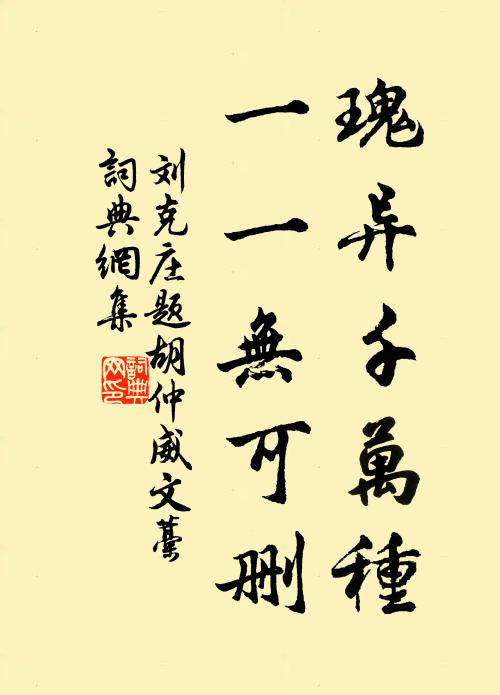 瑰异千萬種
一一無可删
刘克庄题胡仲威文藁
詞典網集
詞典
网印